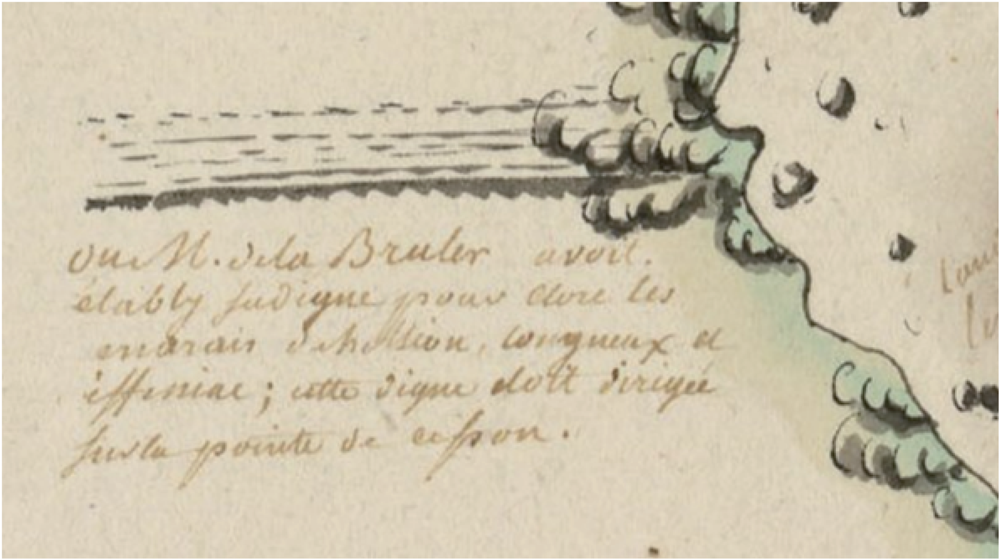 ou M. dela Bruler avoit
étably sa digue pour clore les
marais d'hillion, Langueux et
iffiniac ; cette digue étoit dirigée
sur la pointe de cesson .